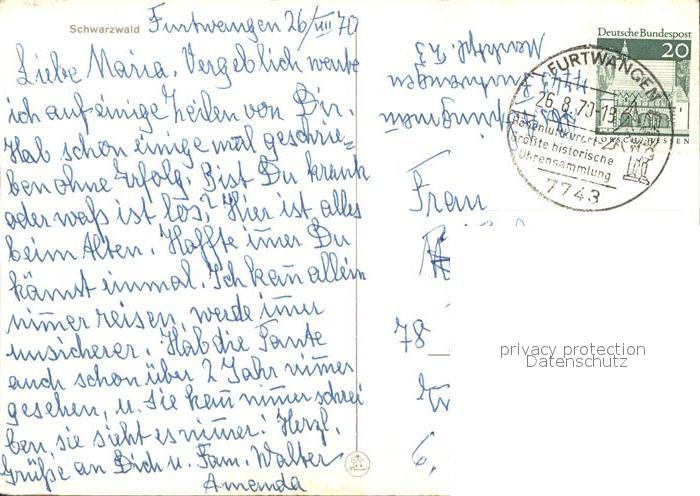 Schwarzwald
Furtwangen 26/VIII 70
Liebe Maria. Vergeblich warte
ich auf einige Zeilen von Dir.
Hab schon einige mal geschrie-
ben ohne Erfolg. Bist Du krank
oder waß ist los? Hier ist alles
beim Alten. Hoffte imer Du
kämst einmal. Ich kan allein
nimer reisen, werde imer
unsicherer. Hab die Tante
auch schon über 2 Jahr nimer
gesehen, u. sie kan nimer schrei
ben, sie sieht es nimer! Herzl.
Grüße an Dich u. Fam. Walter
Amanda
Deutsche Bundespost
20
LORSCH HESSEN
FURTWANGEN
26.8.70-19
Größte historische
Uhrensammlung
7743
Furtwangen
Frau
78
privacy protection
Datenschutz